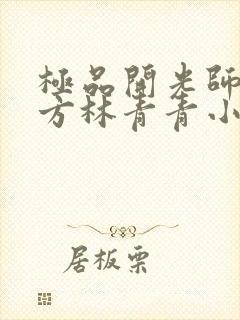 極品開光師
方林青青小
居板栗